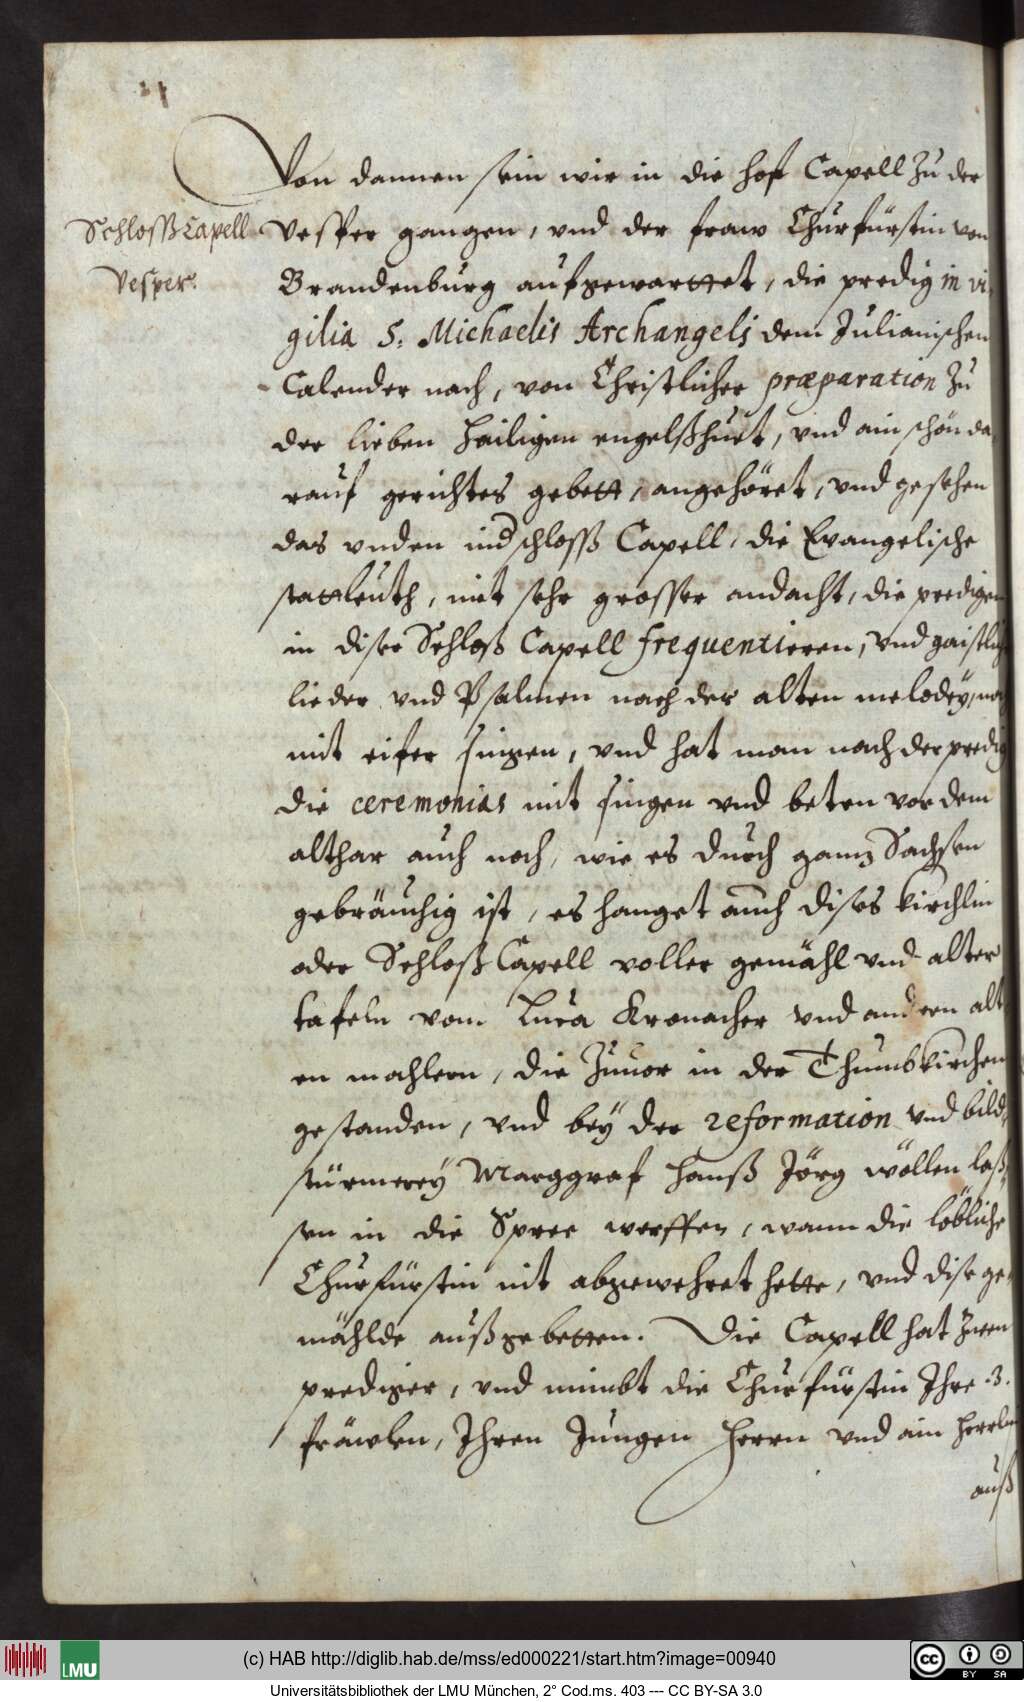 Von dannen sein wir in die hof Capell zu der
Schlosß Capell
Vesper.
Vesper gangen, vnd der fraw Churfürstin von
Brandenburg aufgewarttet, die predig in vi-
gilia S. Michaelis Archangeli dem Julianischen
Calender nach, von Christlicher præparation zu
der lieben heiligen engelßhuet, vnd ain schön da-
rauf gerichtes gebett, angehöret, vnd gesehen
das vnden in d schlosß Capell, die Evangelische
stattleuth, mit sehr grosser andacht, die predigen
in diser Schloß Capell frequentieren, vnd gaistliche
lieder vnd Psalmen nach der alten melodey,
mit eifer singen, vnd hat man nach der predig
die ceremonias mit singen vnd beten vor dem
althar auch noch, wie es durch ganz Sachsen
gebräuchig ist, es hanget auch dises kirchlin
oder Schloß Capell voller gemähl vnd alter
tafeln vom Luca Kronacher vnd andern alt
en mahlern, die zuuor in der Thumbkirchen
gestanden, vnd bey der reformation vnd bild-
stürmerey Marggraf Hanß Jörg wöllen laß-
sen in die Spree werffen, wann die löbliche
Churfürstin nit abgewehret hette, vnd dise ge-
mählde außgebetten. Die Capell hat zwen
prediger, vnd nimbt die Churfürstin Ihre 3.
fräwlen, Ihren Jungen Herrn vnd ain herrlin
auß
(c) HAB http://diglib.hab.de/mss/ed000221/start.htm?image=00940
LMU
cc BY SA
Universitätsbibliothek der LMU München, 2° Cod.ms. 403 --- CC BY-SA 3.0